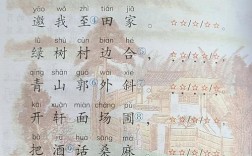 yāo wǒ zhì tián jiā
邀我至④田家。 ☆☆/☆/☆
lǜ shù cūn biān hé
绿树村边合⑤， ☆☆/☆/☆
qīng shān guō wài xié
青山郭⑥外斜。 ☆☆/☆/☆
kāi xuān miàn cháng pǔ
开轩面场圃， ☆☆/☆/☆
bǎ jiǔ huà sāng má
把酒话桑麻。 ☆☆/☆/☆